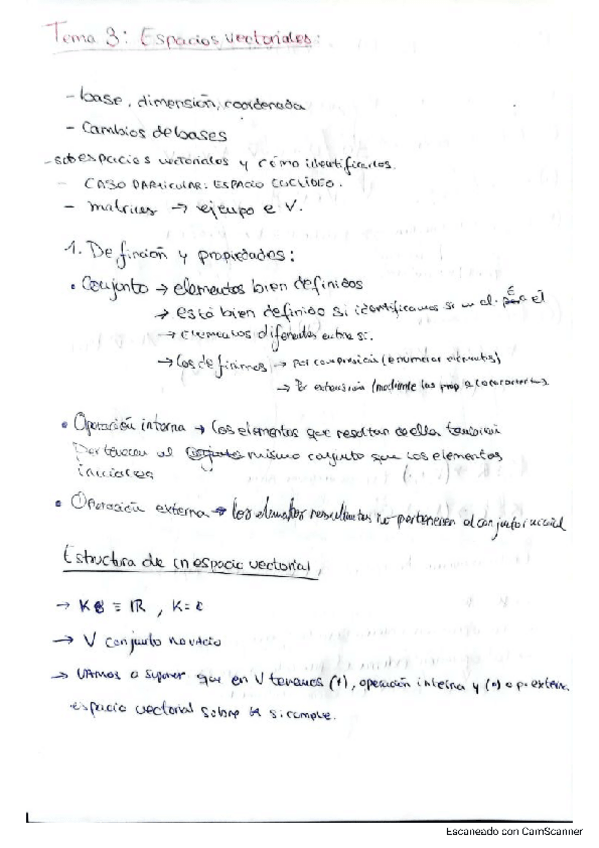 Tema 3: Espacios vectoriales:
- base, dimensión, coordenada
- Cambios de bases
- subespacios vectoriales y cómo identificarlos.
- CASO PARTICULAR: ESPACIO EUCLÍDEO.
- matrices → ejemplo e V.
1. Definción y propiedades:
• Conjunto → elementos bien definidos
→ está bien definido si identificamos si un el. ∈ a él
→ elementos diferentes entre sí.
→ Los definimos → por comprensión (enumerar elementos)
→ Por extensión (mediante las prop a
• Operación interna → Los elementos que resultan de ella también
pertenecen al mismo conjunto que los elementos
iniciales
• Operación externa → los elementos resultantes no pertenecen al conjunto inicial
Estructura de un espacio vectorial,
→ K ≡ IR, K = C
→ V conjunto no vacío
→ Vamos a suponer que en V tenemos (+), operación interna y (•) op. extern.
espacio vectorial sobre K si cumple.
Escaneado con CamScanner